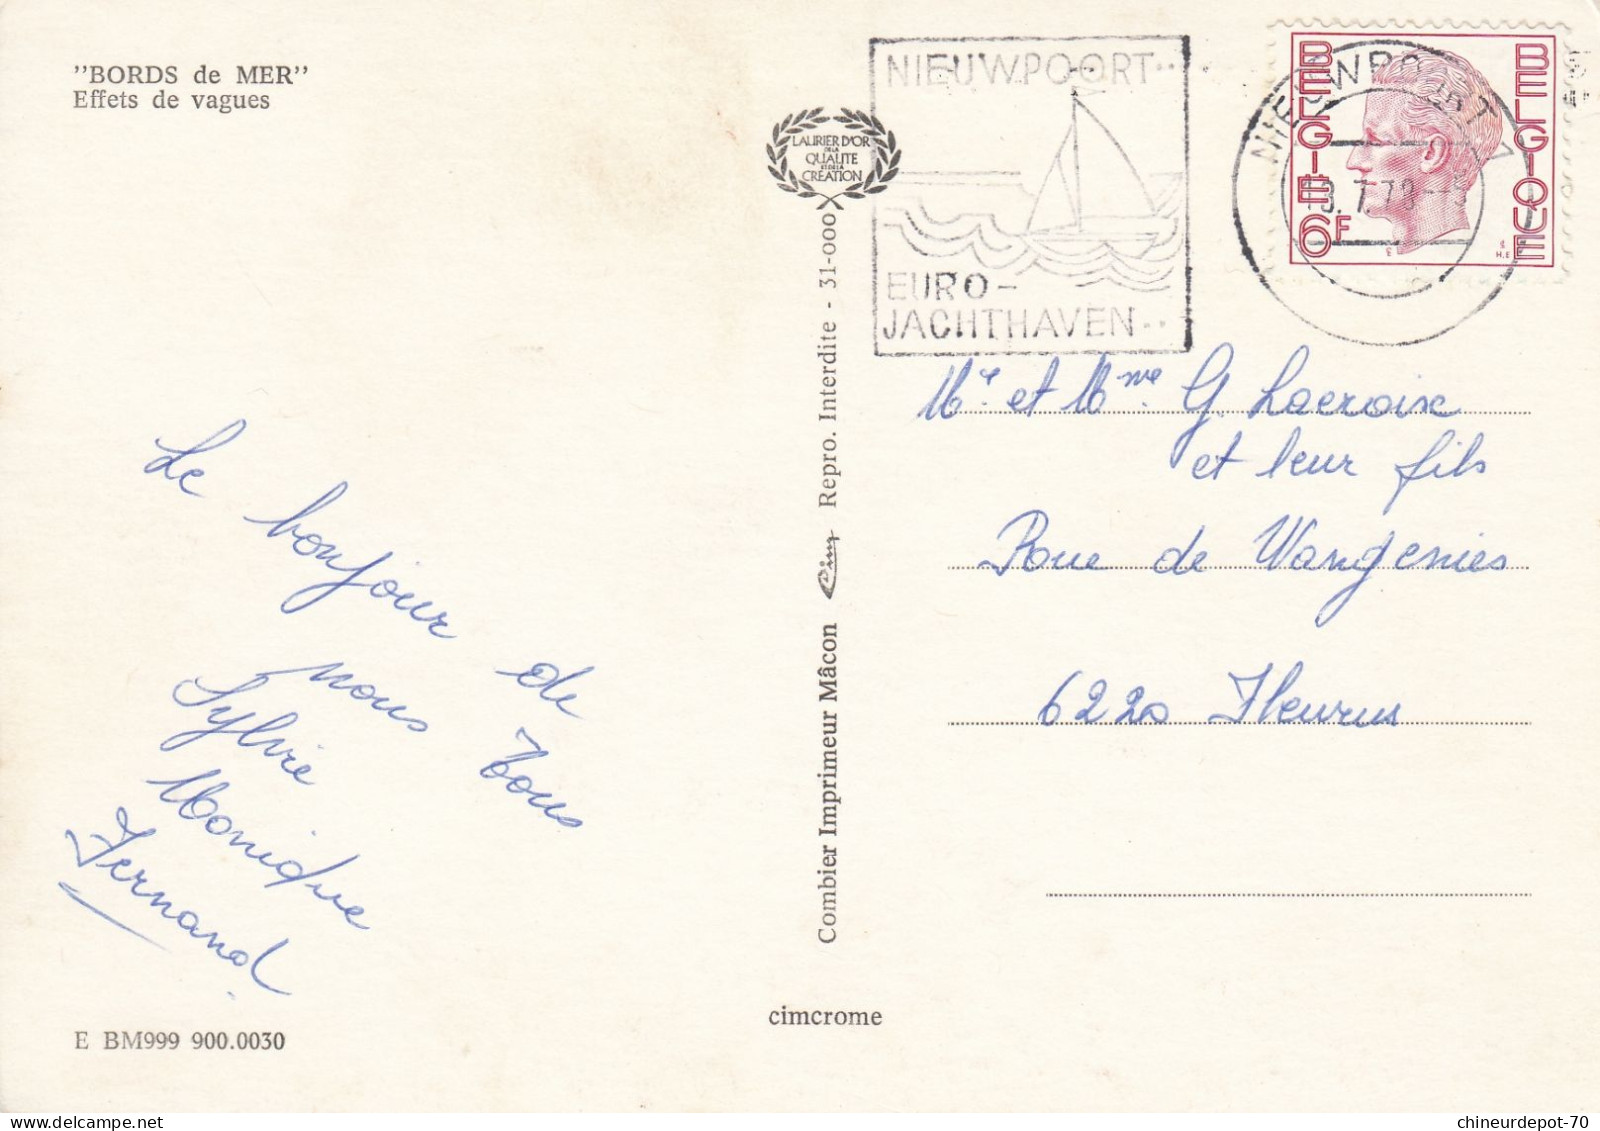 "BORDS de MER"
Effets de vagues
Le bonjour de
nous tous
Sylvie
Monique
Fernand
E BM999 900.0030
LAURIER D'OR
DE LA
QUALITE
ET DE LA
CREATION
Combier Imprimeur Mâcon Cim Repro. Interdite - 31-000
cimcrome
NIEUWPOORT
EURO-
JACHTHAVEN
NIEUWPOORT 1
13.7.78
BELGIE
BELGIQUE
6F
Mr et Mme G. Lacroix
et leur fils
Roue de Wangenies
6220 Fleurus
chineurdepot-70